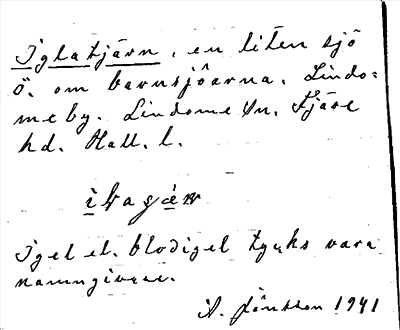 Iglatjärn, en liten sjö
ö. om barnsjöarna. Lindo=
me by. Lindome Sn. Fjäre
hd. Hall. l.
Igel el. blodigel tycks vara
namngivare.
A. Jönsson 1941